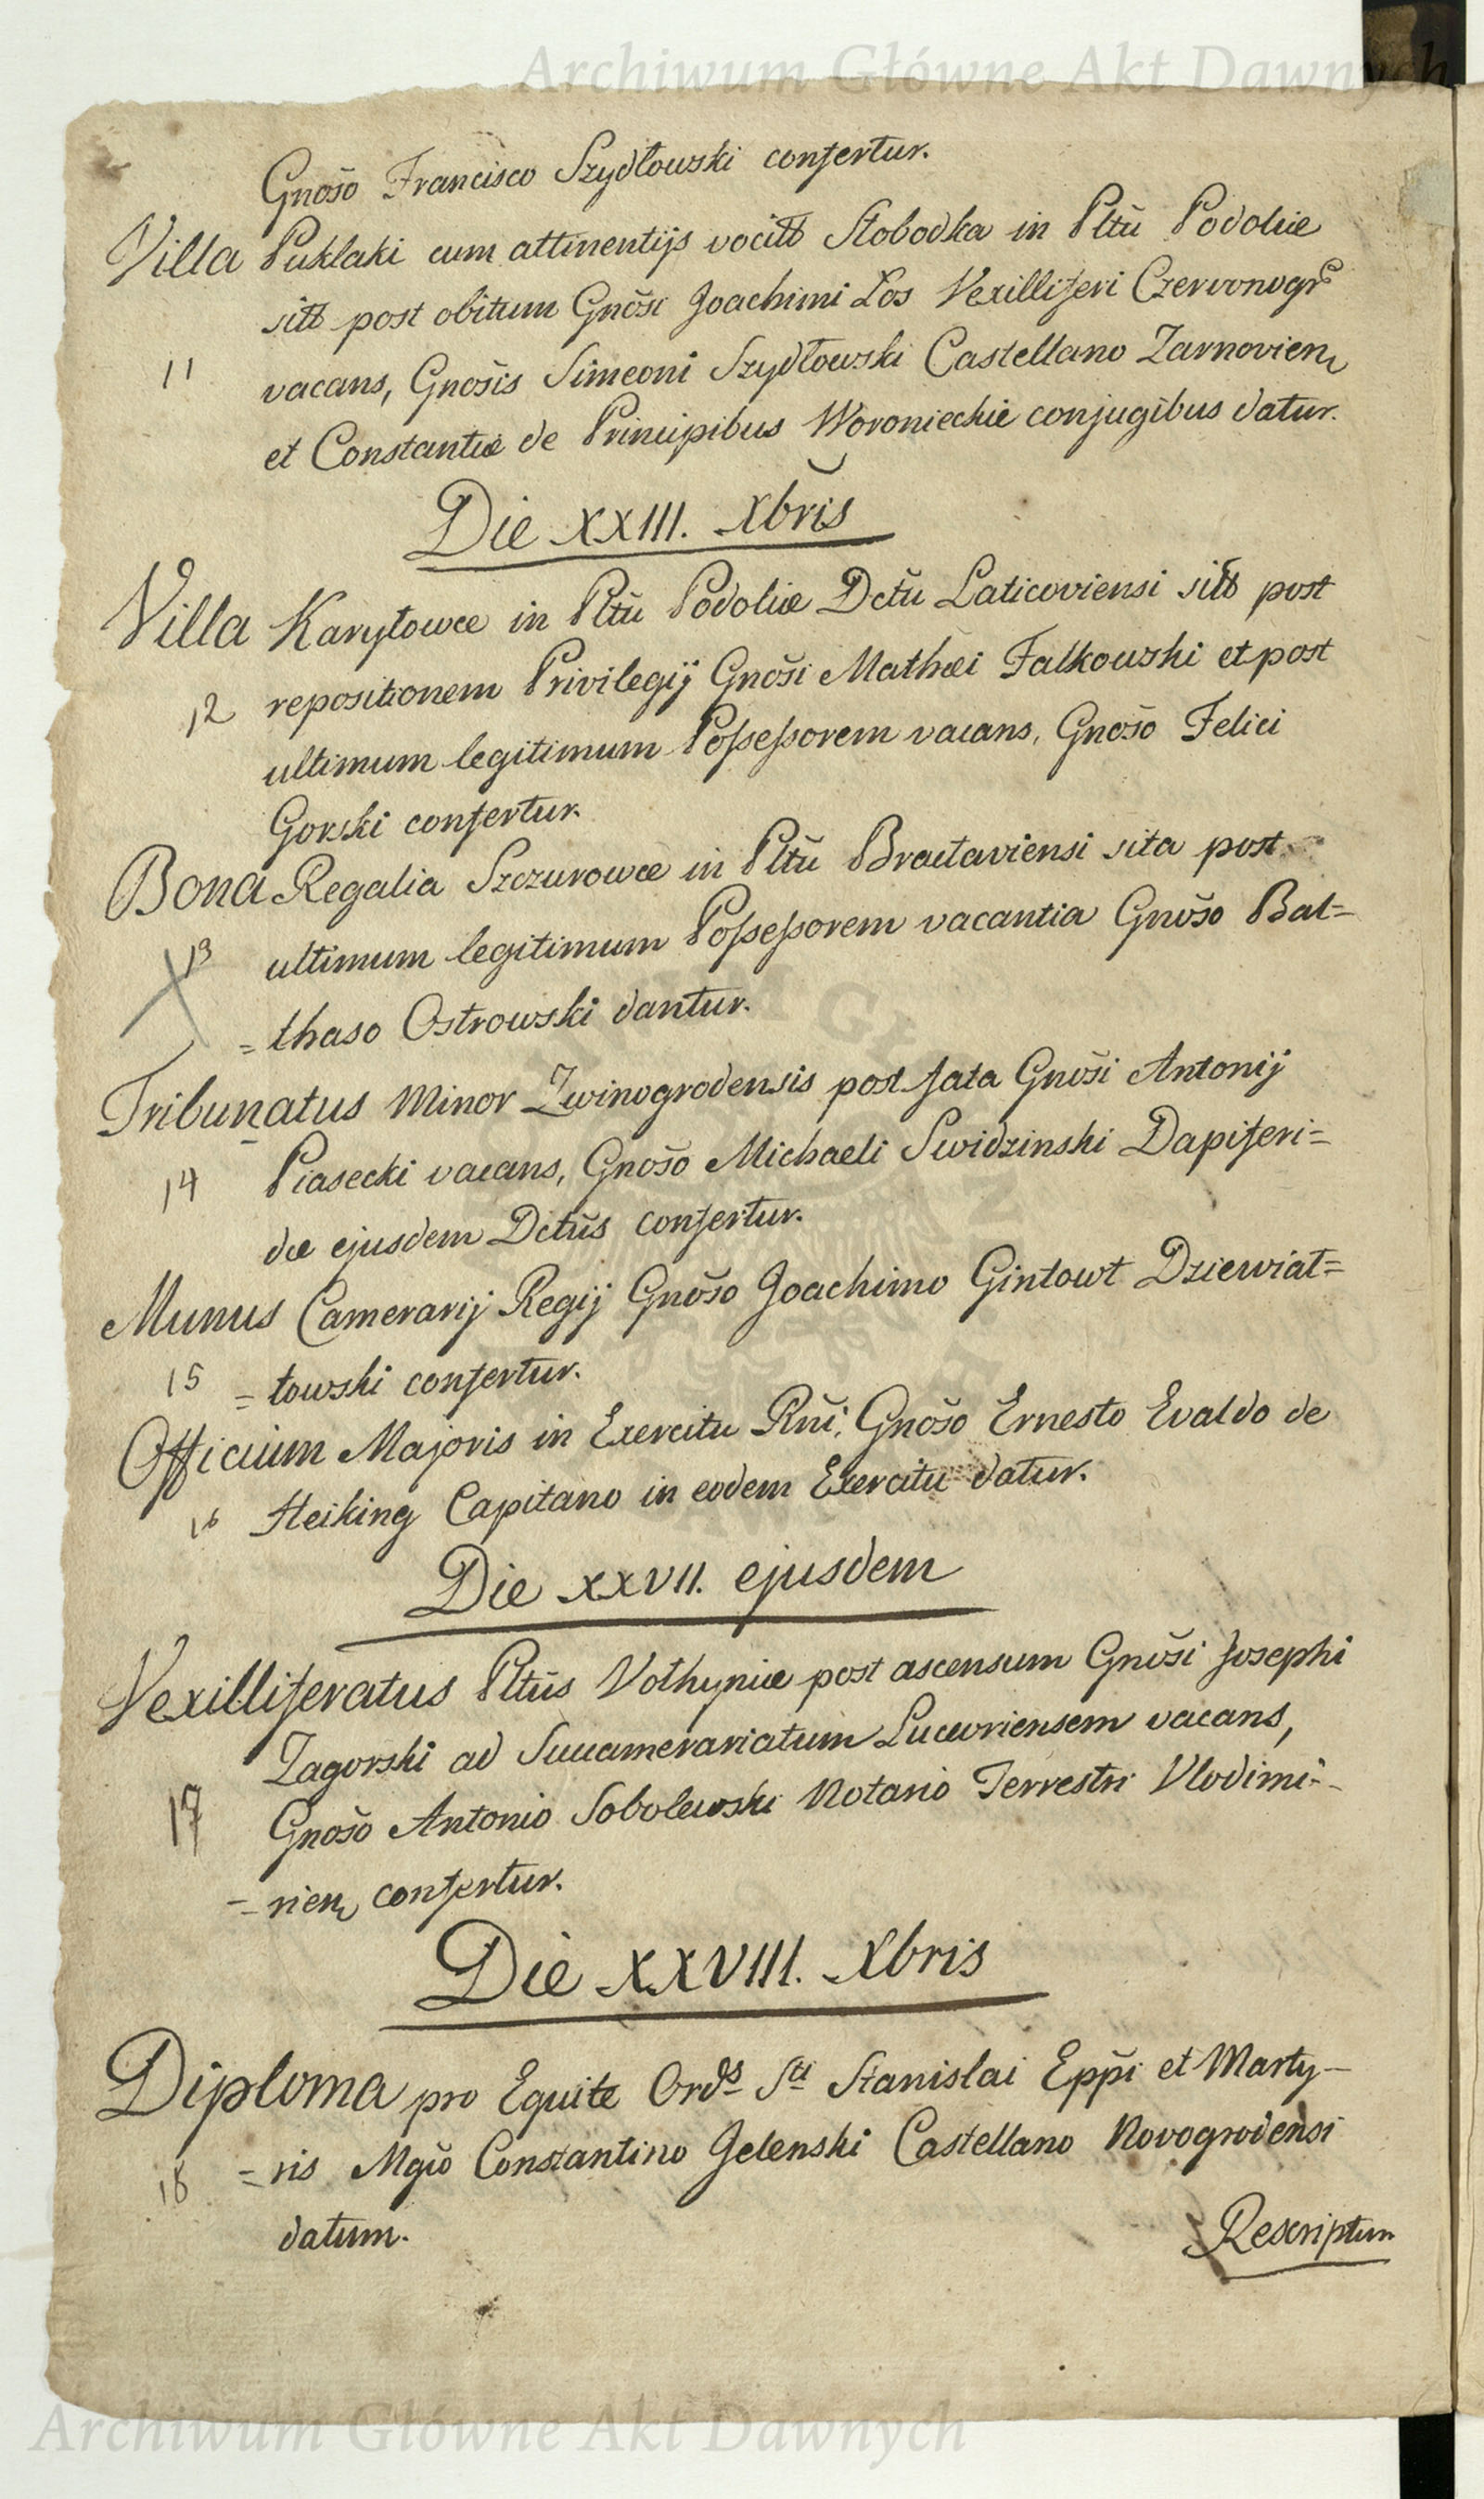 Archiwum Główne Akt Dawnych
Gnošo Francisco Szydłowski confertur.
Villa Puklaki cum attinentijs vocitt Słobodka in Pltũ Podoliæ
sitt post obitum Gnõsi Joachimi Los Vexilliferi Czervonogr
11 vacans, Gnošis Simeoni Szydłowski Castellano Zarnovien
et Constantiæ de Principibus Woroniechie conjugibus datur.
Die XXIII. Xbris
Villa Karytowce in Pltũ Podoliæ Dctũ Laticoviensi sitt post
12 repositionem Privilegij Gnõsi Mathæi Falkowski et post
ultimum legitimum Possessorem vacans, Gnošo Felici
Gorski confertur.
Bona Regalia Szczurowce in Pltũ Braclaviensi sita post
13 ultimum legitimum Possessorem vacantia Gnošo Bal=
=thaso Ostrowski dantur.
Tribunatus Minor Zwinogrodensis post fata Gnõsi Antonij
14 Piasecki vacans, Gnošo Michaeli Swidzinski Dapiferi=
dæ ejusdem Dctũs confertur.
Munus Camerarij Regij Gnošo Joachimo Gintowt Dziewiał=
15 =towski confertur.
Officium Majoris in Exercitu Rñi, Gnošo Ernesto Evaldo de
16 Heiking Capitano in eodem Exercitu datur.
Die XXVII. ejusdem
Vexilliferatus Pltũs Volhyniæ post ascensum Gnõsi Josephi
Zagorski ad Succamerariatum Luceoriensem vacans,
17 Gnošo Antonio Sobolewski Notario Terrestri Vlodimi=
=rien confertur.
Die XXVIII. Xbris
Diploma pro Equite Ords Sti Stanislai Eppĩ et Marty-
18 =ris Mgĩo Constantino Jelenski Castellano Novogrodensi
datum.
Rescriptum
Archiwum Główne Akt Dawnych